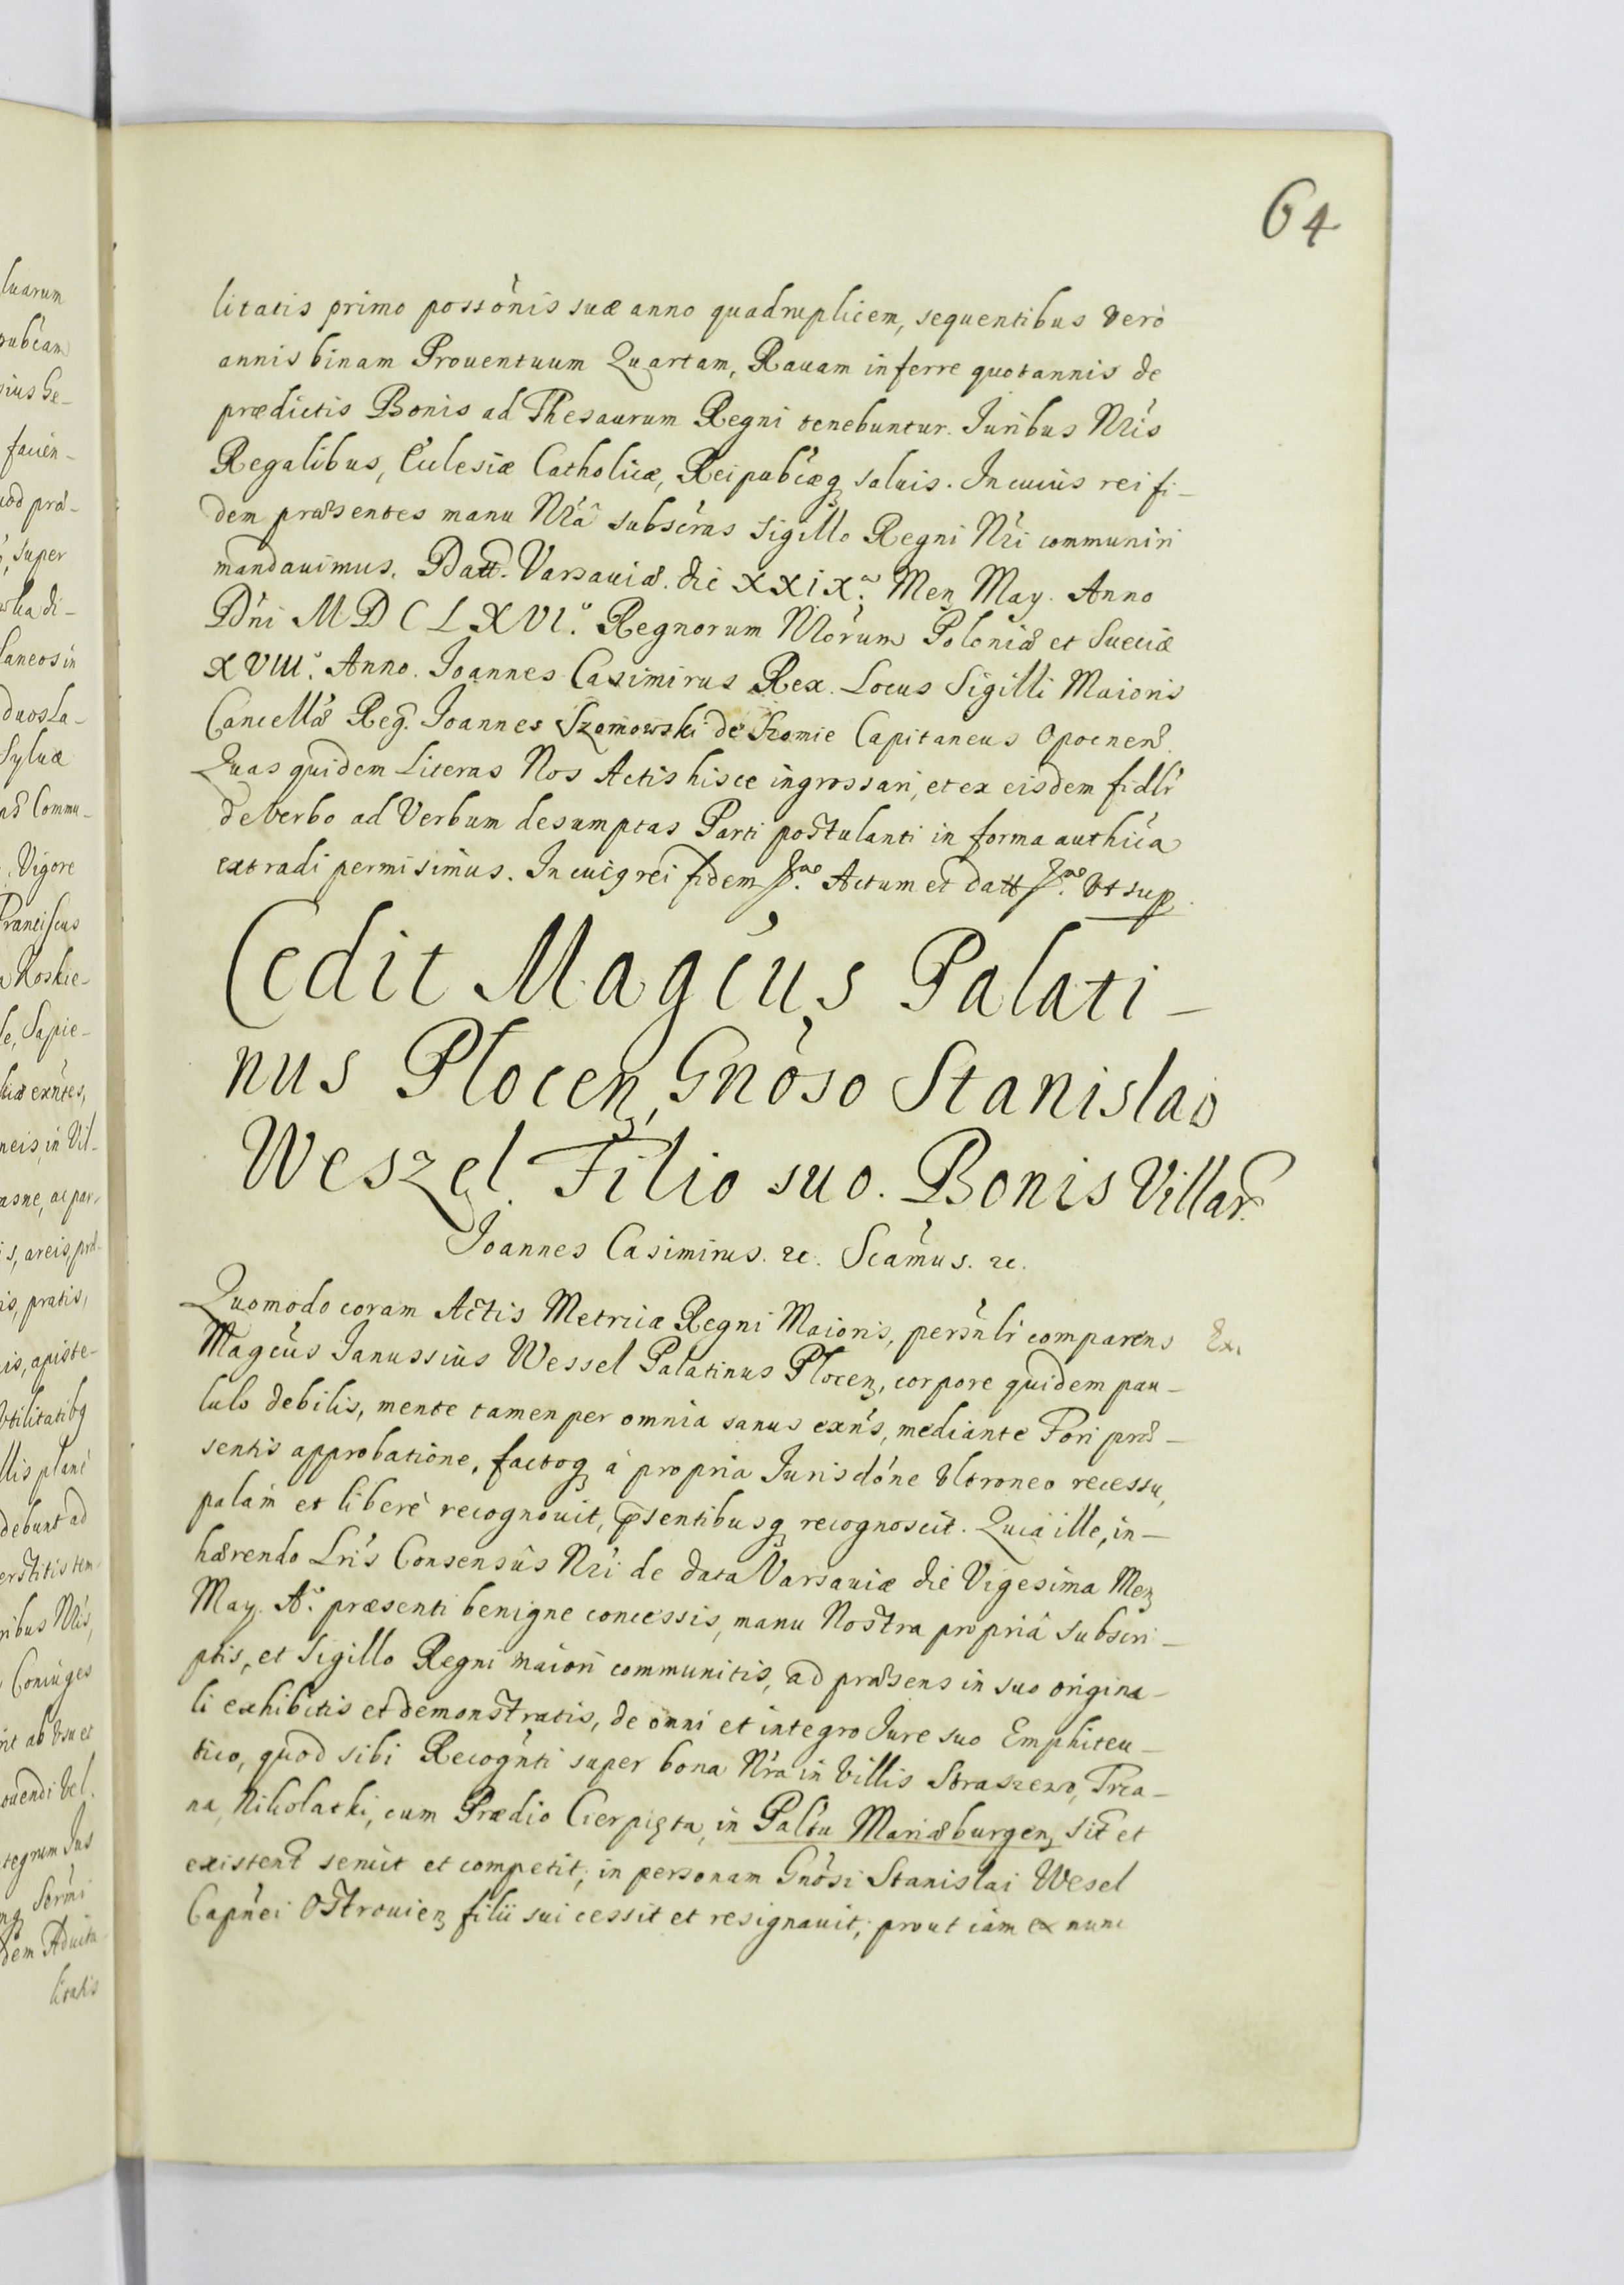 64
litatis primo possónis suæ anno quadruplicem, sequentibus verò
annis binam Prouentuum Quartam, Rauam inferre quotannis de
prædictis Bonis ad Thesaurum Regni tenebuntur. Juribus Nr̃is
Regalibus, Ecclesiæ Catholicæ, Reipubc̃æq, saluis. In cuius rei fi-
dem præsentes manu Nr̃â subscr̃as Sigillo Regni Nr̃i communiri
mandauimus. Datt. Varsauiæ. die XXIXa. Men May. Anno
Dńi MDCLXVIo. Regnorum Nŕorum Poloniæ et Sueciæ
XVIIIo. Anno. Joannes Casimirus Rex. Locus Sigilli Maioris
Cancellæ Reg. Joannes Szomowski de Szomie Capitaneus Opocnen.
Quas quidem Literas Nos Actis hisce ingrossari, et ex eisdem fidlr̃
de verbo ad Verbum desumptas Parti postulanti in forma authića
extradi permisimus. In cuiq rei fidem Actum et datt Vt sup.
Cedit Magćus Palati-
nus Plocen, Gnóso Stanislao
Weszel Filio suo. Bonis Villar.
Joannes Casimirus. rc. Scámus. rc.
Quomodo coram Actis Metricæ Regni Maioris, persńlr comparens
Ex.
Magćus Janussius Wessel Palatinus Plocen, corpore quidem pau-
lulo debilis, mente tamen per omnia sanus exńs, mediante Fori præ-
sentis approbatione, factoq à propria Jurisdóne Vltroneo recessu,
palàm et liberè recognouit, p̃sentibusq recognoscit. Quia ille, in-
hærendo Lrís Consensûs Nr̃i de data Varsauiæ die Vigesima Men
May. Ao. præsenti benigne concessis, manu Nostra propriâ subscri-
ptis, et Sigillo Regni maiori communitis, ad præsens in suo origina-
li exhibitis et demonstratis, de omni et integro Jure suo Emphiteu-
tico, quod sibi Recogńti super bona Nr̃a in Villis Straszewo, Trca-
na, Nikolaiki, cum Prædio Cierpięta, in Paltu Mariæburgen sit et
existent seruit et competit, in personam Gnósi Stanislai Wesel
Capńei Ostrouien filii sui cessit et resignauit, prout iàm ex nunc